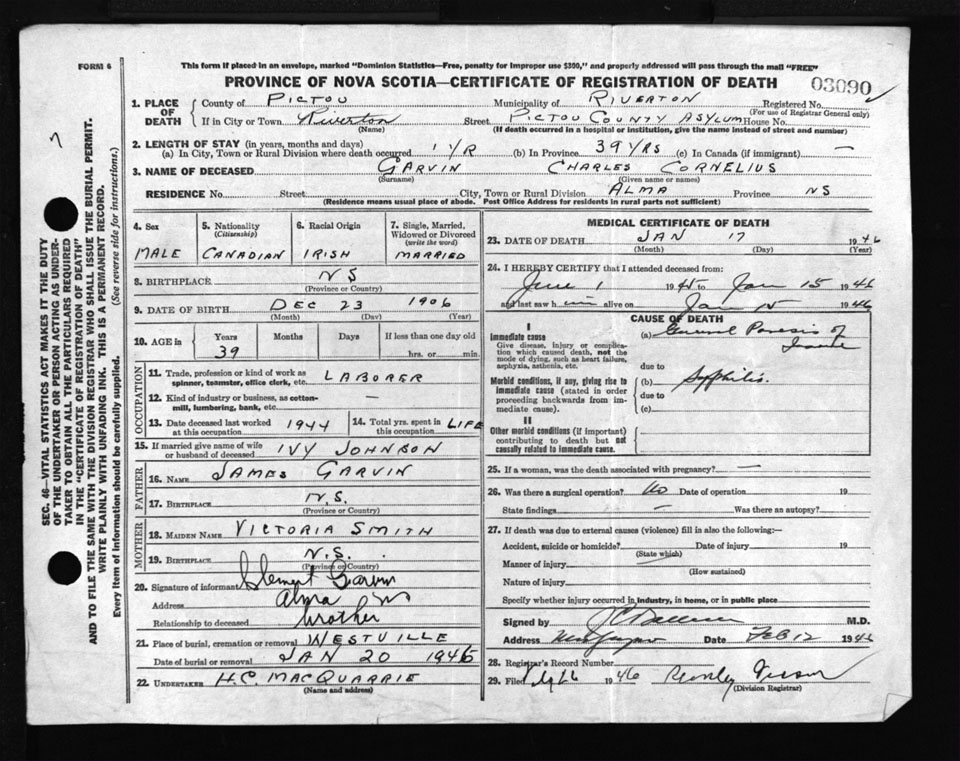 FORM 6
This form if placed in an envelope, marked "Dominion Statistics—Free, penalty for improper use $300," and properly addressed will pass through the mail "FREE"
PROVINCE OF NOVA SCOTIA—CERTIFICATE OF REGISTRATION OF DEATH
03090
1. PLACE OF DEATH
County of PICTOU Municipality of RIVERTON Registered No.
(For use of Registrar General only)
If in City or Town Riverton Street PICTOU COUNTY ASYLUM House No.
(Name) (If death occurred in a hospital or institution, give the name instead of street and number)
2. LENGTH OF STAY (in years, months and days)
(a) In City, Town or Rural Division where death occurred 1 YR (b) In Province 39 YRS (c) In Canada (if immigrant) —
3. NAME OF DECEASED GARVIN CHARLES CORNELIUS
(Surname) (Given name or names)
RESIDENCE No. Street City, Town or Rural Division ALMA Province NS
(Residence means usual place of abode. Post Office Address for residents in rural parts not sufficient)
4. Sex
MALE
5. Nationality
(Citizenship)
CANADIAN
6. Racial Origin
IRISH
7. Single, Married, Widowed or Divorced
(write the word)
MARRIED
8. BIRTHPLACE NS
(Province or Country)
9. DATE OF BIRTH DEC 23 1906
(Month) (Day) (Year)
10. AGE in Years Months Days If less than one day
39 hrs. or min.
OCCUPATION
11. Trade, profession or kind of work as spinner, teamster, office clerk, etc. LABORER
12. Kind of industry or business, as cotton-mill, lumbering, bank, etc. —
13. Date deceased last worked at this occupation 1944
14. Total yrs. spent in this occupation LIFE
15. If married give name of wife or husband of deceased IVY JOHNSON
FATHER
16. NAME JAMES GARVIN
17. BIRTHPLACE N.S.
(Province or Country)
MOTHER
18. MAIDEN NAME VICTORIA SMITH
19. BIRTHPLACE N.S.
(Province or Country)
20. Signature of informant Clement Garvin
Address Alma NS
Relationship to deceased brother
21. Place of burial, cremation or removal WESTVILLE
Date of burial or removal JAN 20 1946
22. UNDERTAKER H.C. MACQUARRIE
(Name and address)
MEDICAL CERTIFICATE OF DEATH
23. DATE OF DEATH JAN 17 1946
(Month) (Day) (Year)
24. I HEREBY CERTIFY that I attended deceased from:
June 1 1945 to Jan 15 1946
and last saw him alive on Jan 15 1946
CAUSE OF DEATH
I
Immediate cause
Give disease, injury or complication which caused death, not the mode of dying, such as heart failure, asphyxia, asthenia, etc.
(a) General Paresis of Insane
due to
Morbid conditions, if any, giving rise to immediate cause (stated in order proceeding backwards from immediate cause)
(b) Syphilis.
due to
(c)
II
Other morbid conditions (if important) contributing to death but not causally related to immediate cause.
25. If a woman, was the death associated with pregnancy? —
26. Was there a surgical operation? No Date of operation 19
State findings — Was there an autopsy?
27. If death was due to external causes (violence) fill in also the following:—
Accident, suicide or homicide? Date of injury 19
(State which)
Manner of injury
(How sustained)
Nature of injury
Specify whether injury occurred in industry, in home, or in public place
Signed by M.D.
Address Date Feb 12 1946
28. Registrar's Record Number
29. Filed 1946
(Division Registrar)
SEC. 46—VITAL STATISTICS ACT MAKES IT THE DUTY
OF THE UNDERTAKER OR PERSON ACTING AS UNDER-
TAKER TO OBTAIN ALL THE PARTICULARS REQUIRED
IN THE "CERTIFICATE OF REGISTRATION OF DEATH"
AND TO FILE THE SAME WITH THE DIVISION REGISTRAR WHO SHALL ISSUE THE BURIAL PERMIT.
WRITE PLAINLY WITH UNFADING INK. THIS IS A PERMANENT RECORD.
Every item of information should be carefully supplied. (See reverse side for instructions.)